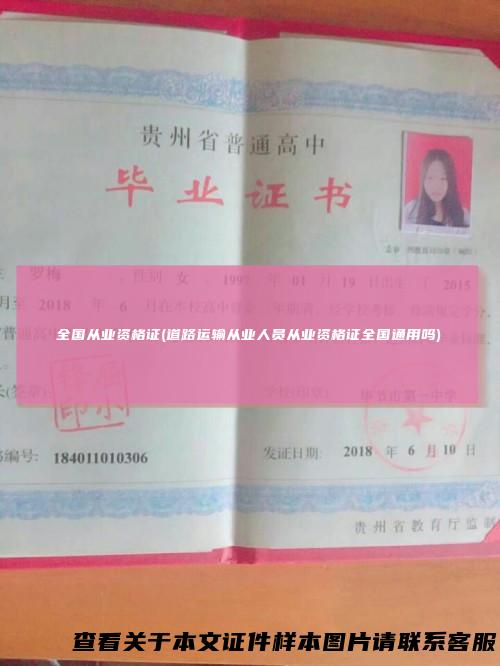 贵州省普通高中
毕业证书
罗梅 ,性别 女 , 1997 年 01 月 19 日出生 于 2015
月至 2018 年 6 月在本校高中
全国从业资格证(道路运输从业人员从业资格证全国通用吗)
毕节市第一中学
编号: 184011010306
发证日期: 2018 年 6 月 10 日
贵州省教育厅监制
查看关于本文证件样本图片请联系客服